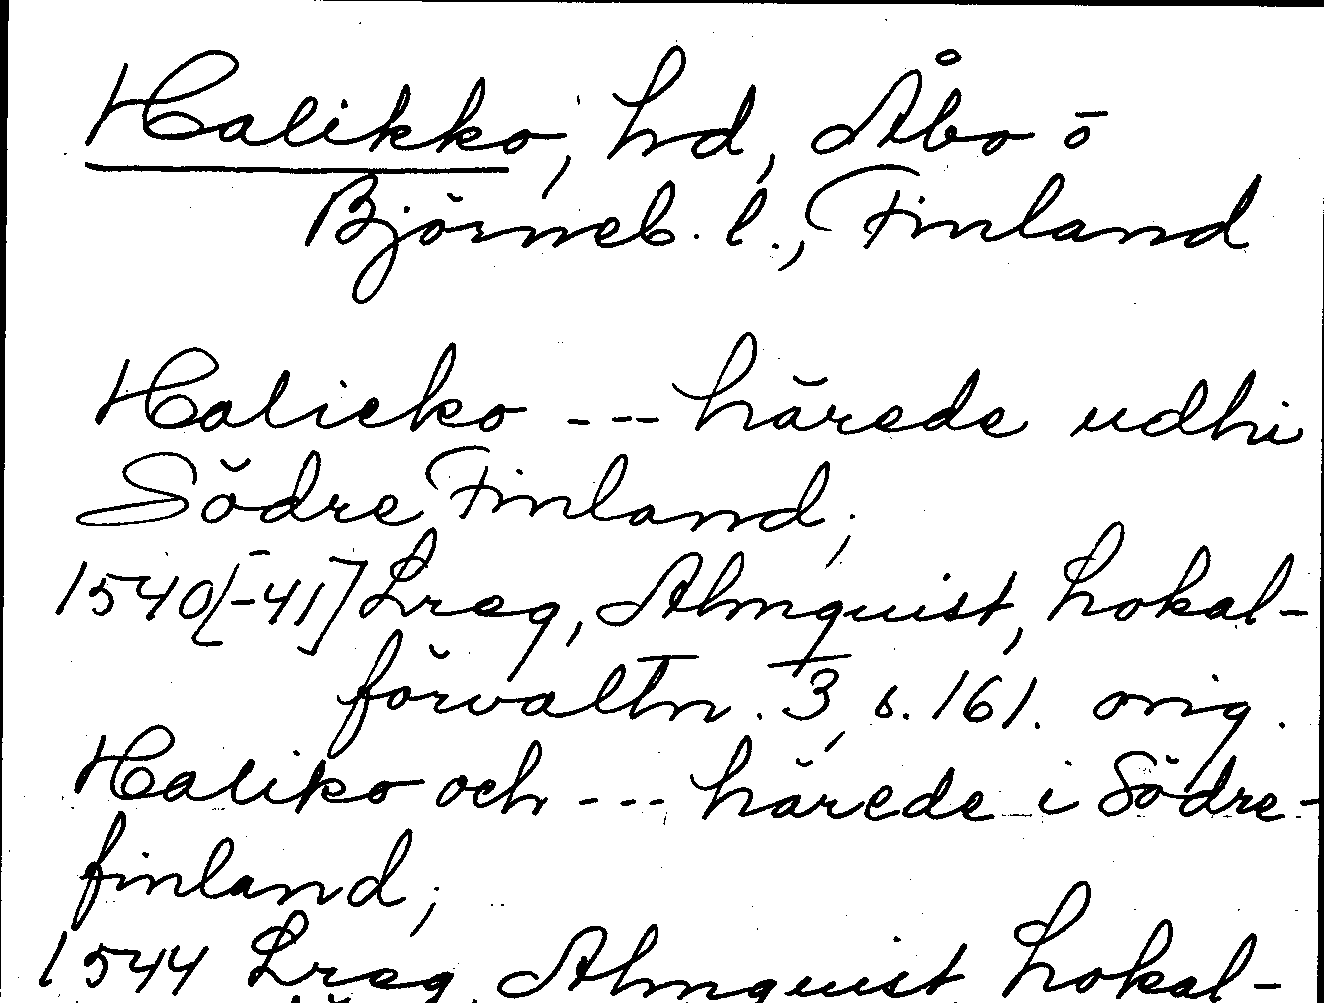 Halikko, hd, Åbo o
Björneb. l., Finland
Halicko --- härede udhi
Södre Finland;
1540[-41] Lreg, Almquist, Lokal-
förvaltn. 3, s. 161. orig.
Haliko och --- härede i Södre-
finland;
1544 Lreg, Almquist Lokal-